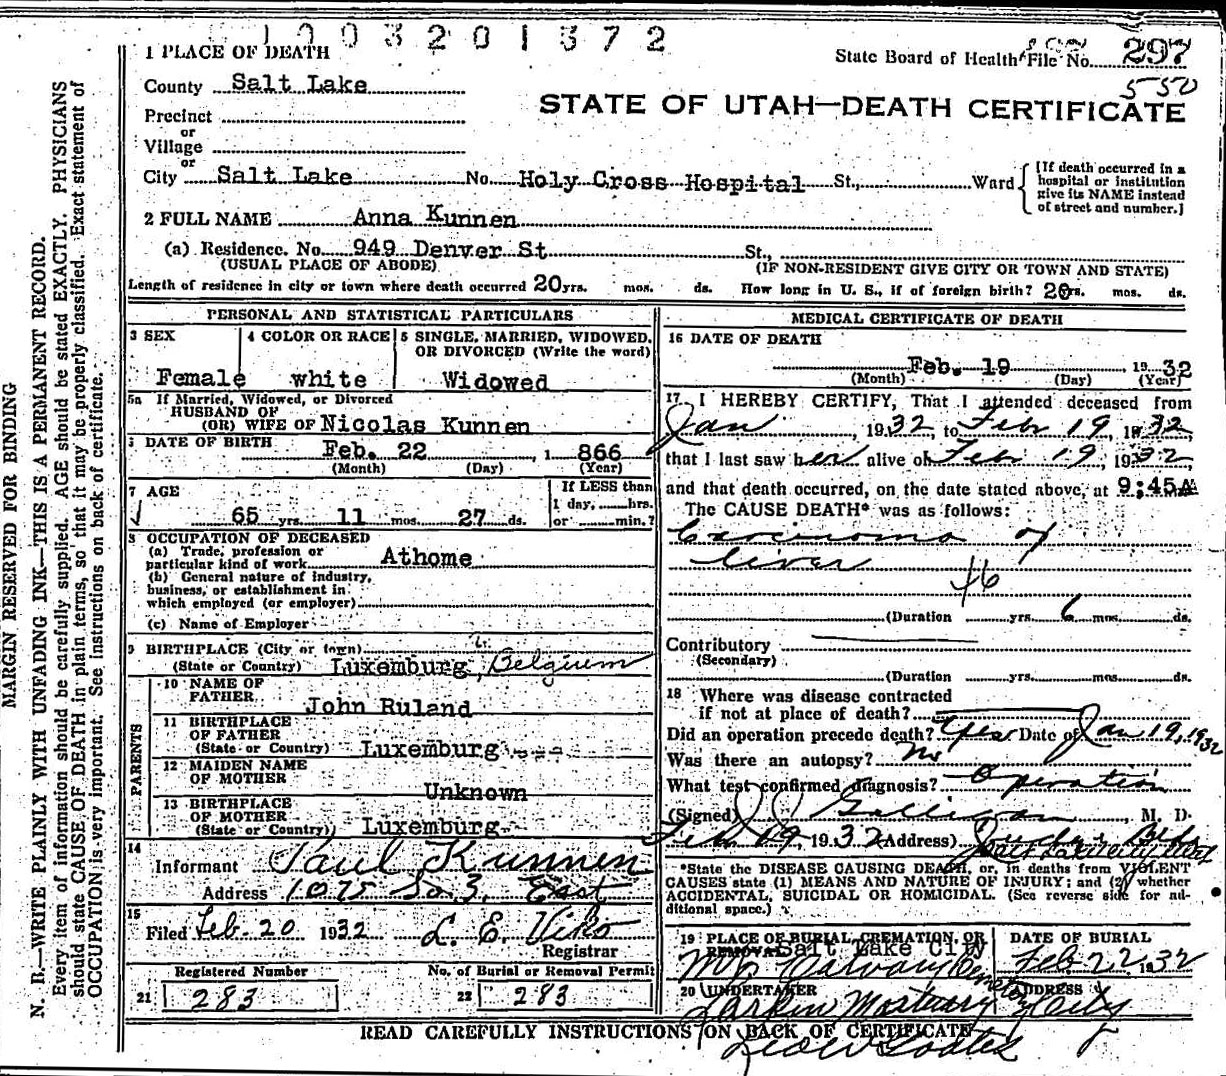 1003201372
1 PLACE OF DEATH
State Board of Health File No. 297
550
County Salt Lake
STATE OF UTAH—DEATH CERTIFICATE
Precinct
or
Village
or
City Salt Lake No. Holy Cross Hospital St., Ward
[If death occurred in a hospital or institution give its NAME instead of street and number.]
2 FULL NAME Anna Kunnen
(a) Residence. No. 949 Denver St St.,
(USUAL PLACE OF ABODE) (IF NON-RESIDENT GIVE CITY OR TOWN AND STATE)
Length of residence in city or town where death occurred 20 yrs. mos. ds. How long in U. S., if of foreign birth? 20 yrs. mos. ds.
PERSONAL AND STATISTICAL PARTICULARS
3 SEX 4 COLOR OR RACE 5 SINGLE, MARRIED, WIDOWED,
OR DIVORCED (Write the word)
Female white Widowed
5a If Married, Widowed, or Divorced
HUSBAND OF
(OR) WIFE OF Nicolas Kunnen
DATE OF BIRTH Feb. 22, 1 866
(Month) (Day) (Year)
7 AGE
If LESS than
1 day, hrs.
65 yrs. 11 mos. 27 ds. or min.?
8 OCCUPATION OF DECEASED
(a) Trade, profession or
particular kind of work Athome
(b) General nature of industry,
business, or establishment in
which employed (or employer)
(c) Name of Employer
9 BIRTHPLACE (City or town)
(State or Country) Luxemburg, Belgium
PARENTS
10 NAME OF
FATHER John Ruland
11 BIRTHPLACE
OF FATHER
(State or Country) Luxemburg
12 MAIDEN NAME
OF MOTHER Unknown
13 BIRTHPLACE
OF MOTHER
(State or Country) Luxemburg
14
Informant Paul Kunnen
Address 1075 So 3 East
15
Filed Feb. 20 1932 L. E. Viko
Registrar
Registered Number No. of Burial or Removal Permit
21 283 22 283
MEDICAL CERTIFICATE OF DEATH
16 DATE OF DEATH
Feb. 19 19 32
(Month) (Day) (Year)
17 I HEREBY CERTIFY, That I attended deceased from
Jan, 1932, to Feb 19, 1932,
that I last saw her alive on Feb 19, 1932,
and that death occurred, on the date stated above, at 9:45A
The CAUSE DEATH* was as follows:
Carcinoma of
liver
46
(Duration yrs. 6 mos. ds.
Contributory
(Secondary)
(Duration yrs. mos. ds.
18 Where was disease contracted
if not at place of death?
Did an operation precede death? Yes Date of Jan 19, 1932
Was there an autopsy? No
What test confirmed diagnosis? Operation
(Signed) J J Galligan, M. D.
Feb 19, 1932 Address) Judge Bldg
Salt Lake City
*State the DISEASE CAUSING DEATH, or, in deaths from VIOLENT
CAUSES state (1) MEANS AND NATURE OF INJURY; and (2) whether
ACCIDENTAL, SUICIDAL OR HOMICIDAL. (See reverse side for ad-
ditional space.)
19 PLACE OF BURIAL, CREMATION, OR REMOVAL DATE OF BURIAL
Salt Lake City
Mt Calvary Cemetery Feb. 22 1932
20 UNDERTAKER ADDRESS
Larkin Mortuary City
READ CAREFULLY INSTRUCTIONS ON BACK OF CERTIFICATE
MARGIN RESERVED FOR BINDING
N. B.—WRITE PLAINLY WITH UNFADING INK—THIS IS A PERMANENT RECORD.
Every item of information should be carefully supplied. AGE should be stated EXACTLY. PHYSICIANS
should state CAUSE OF DEATH in plain terms, so that it may be properly classified. Exact statement of
OCCUPATION is very important. See instructions on back of certificate.